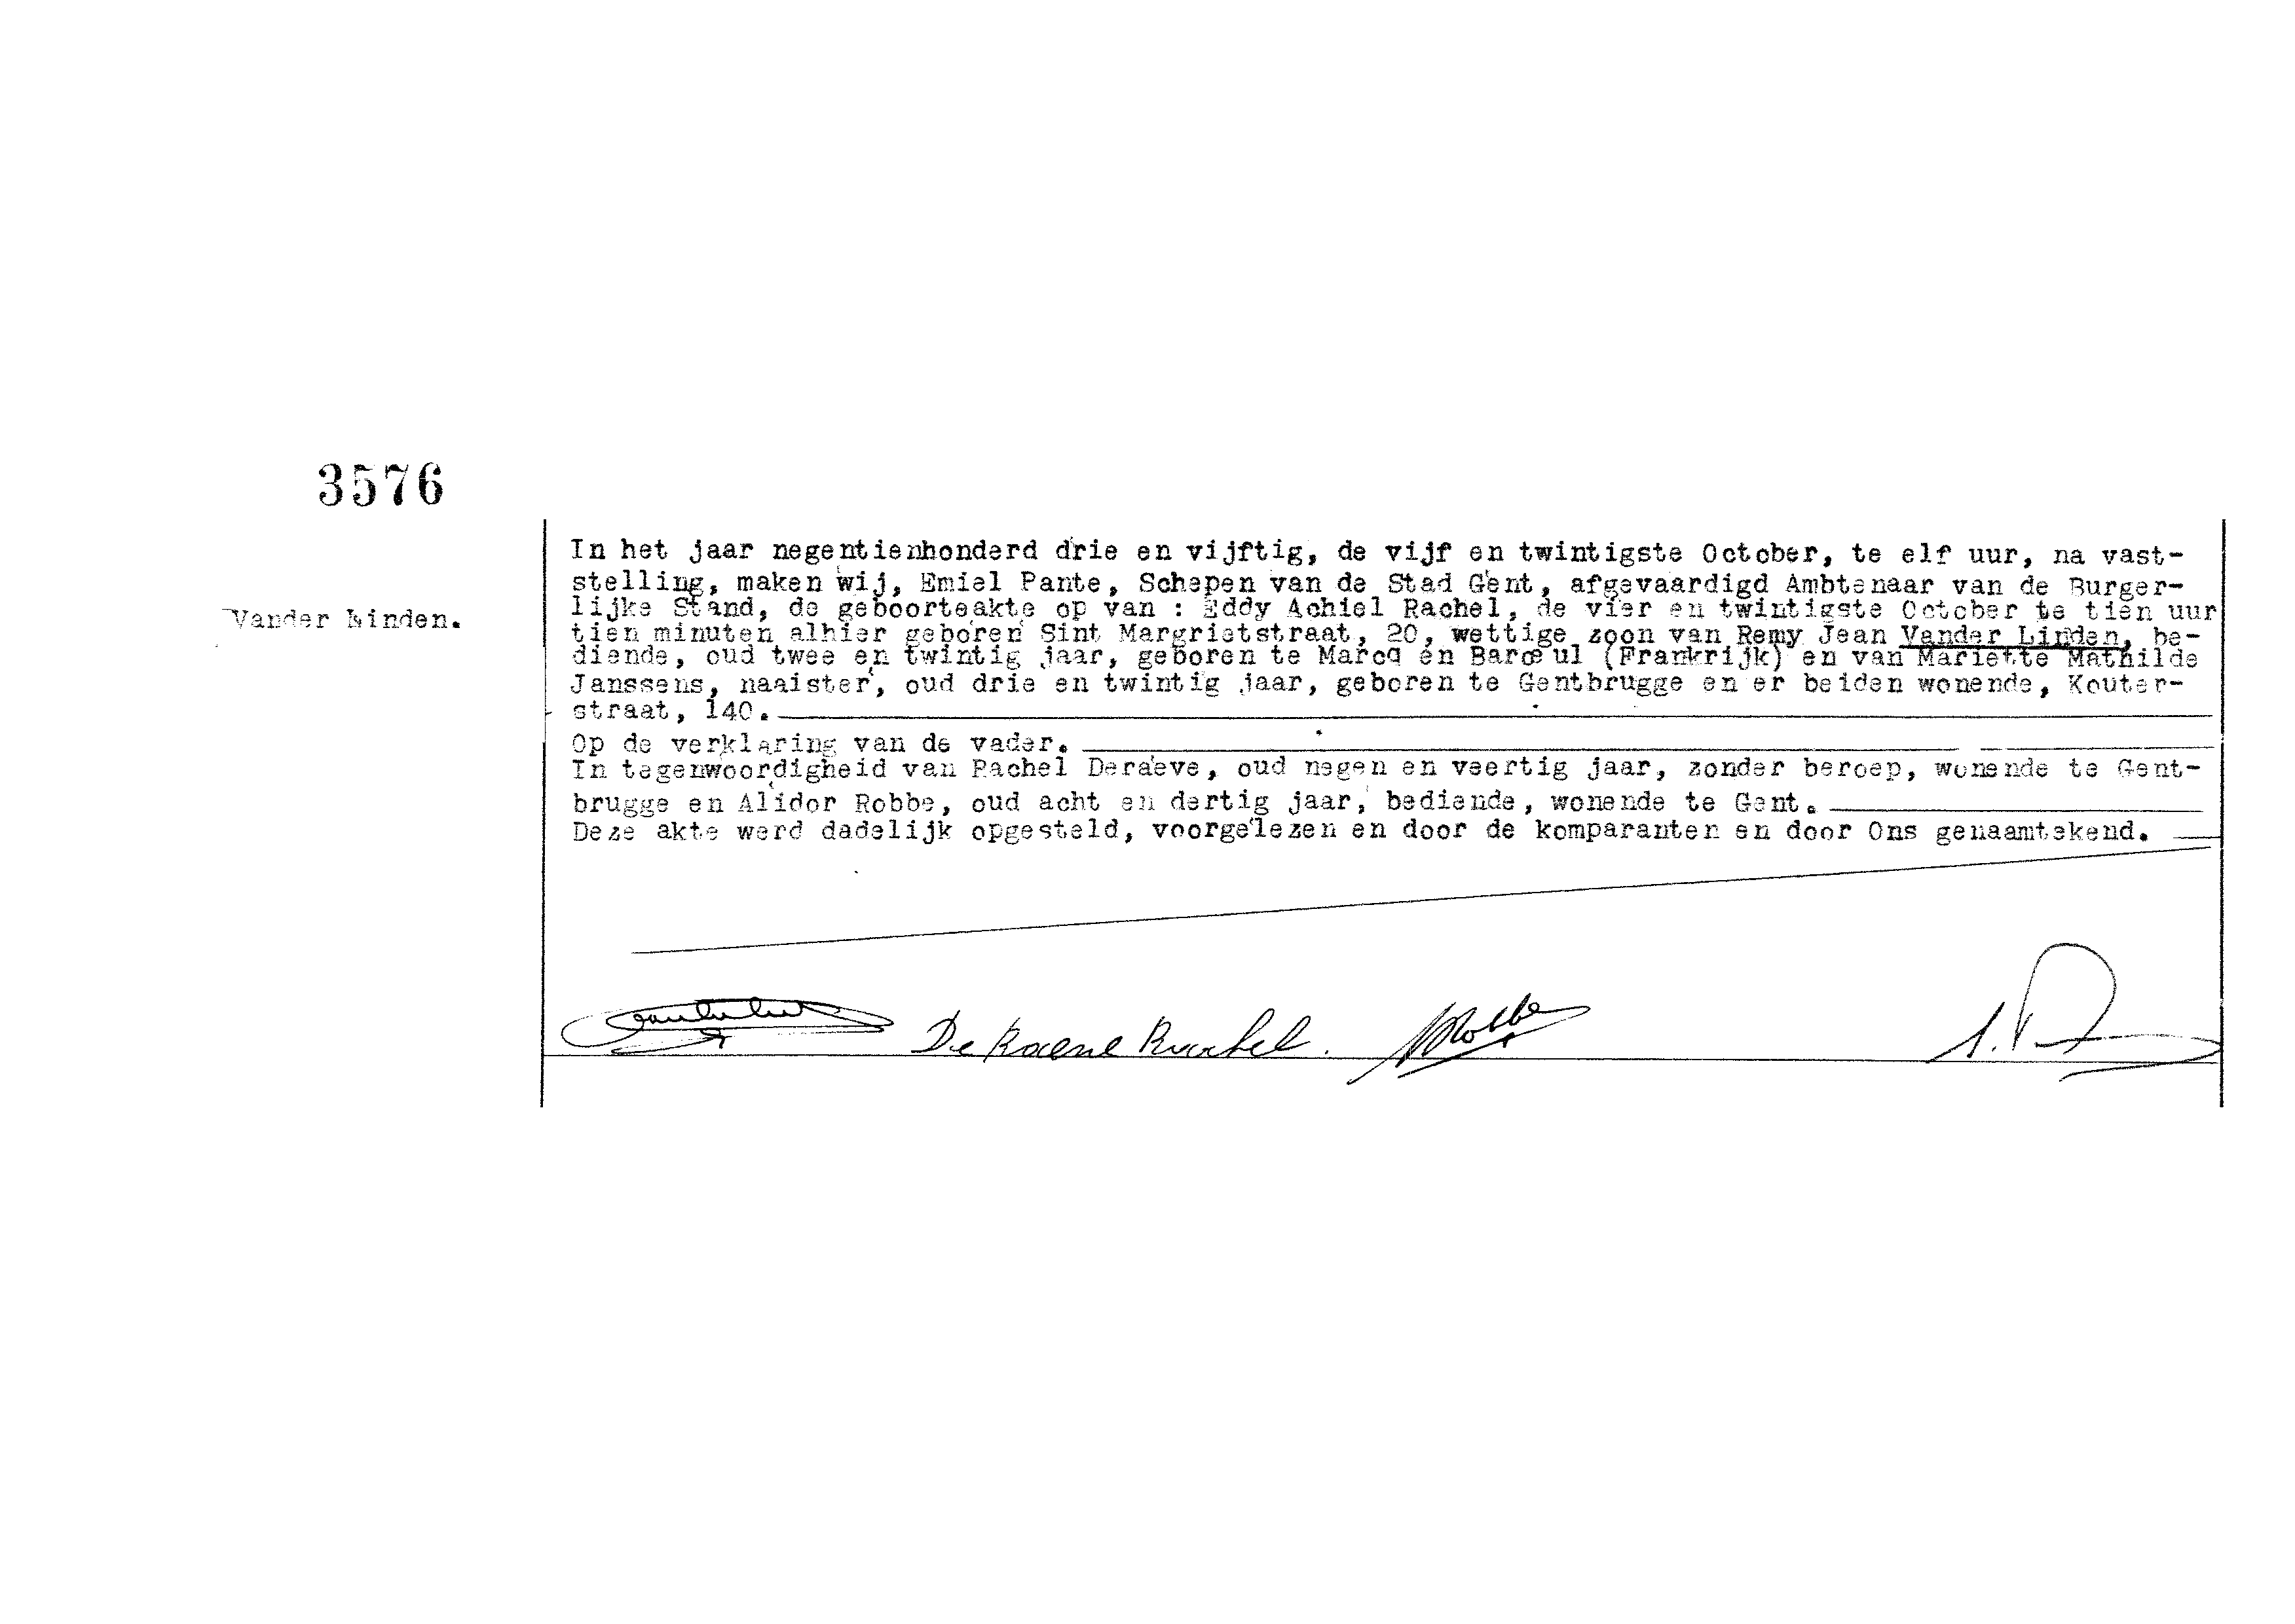 3576
In het jaar negentienhonderd drie en vijftig, de vijf en twintigste October, te elf uur, na vast-
stelling, maken wij, Emiel Pante, Schepen van de Stad Gent, afgevaardigd Ambtenaar van de Burger-
lijke Stand, de geboorteakte op van : Eddy Achiel Rachel, de vier en twintigste October te tien uur
Vander Linden.
tien minuten alhier geboren Sint Margrietstraat, 20, wettige zoon van Remy Jean Vander Linden, be-
diende, oud twee en twintig jaar, geboren te Marcq en Barœul (Frankrijk) en van Mariette Mathilde
Janssens, naaister, oud drie en twintig jaar, geboren te Gentbrugge en er beiden wonende, Kouter-
straat, 140.
Op de verklaring van de vader.
In tegenwoordigheid van Rachel Deraeve, oud negen en veertig jaar, zonder beroep, wonende te Gent-
brugge en Alidor Robbe, oud acht en dertig jaar, bediende, wonende te Gent.
Deze akte werd dadelijk opgesteld, voorgelezen en door de komparanten en door Ons genaamtekend.
De Raeve Rachel.
Robbe